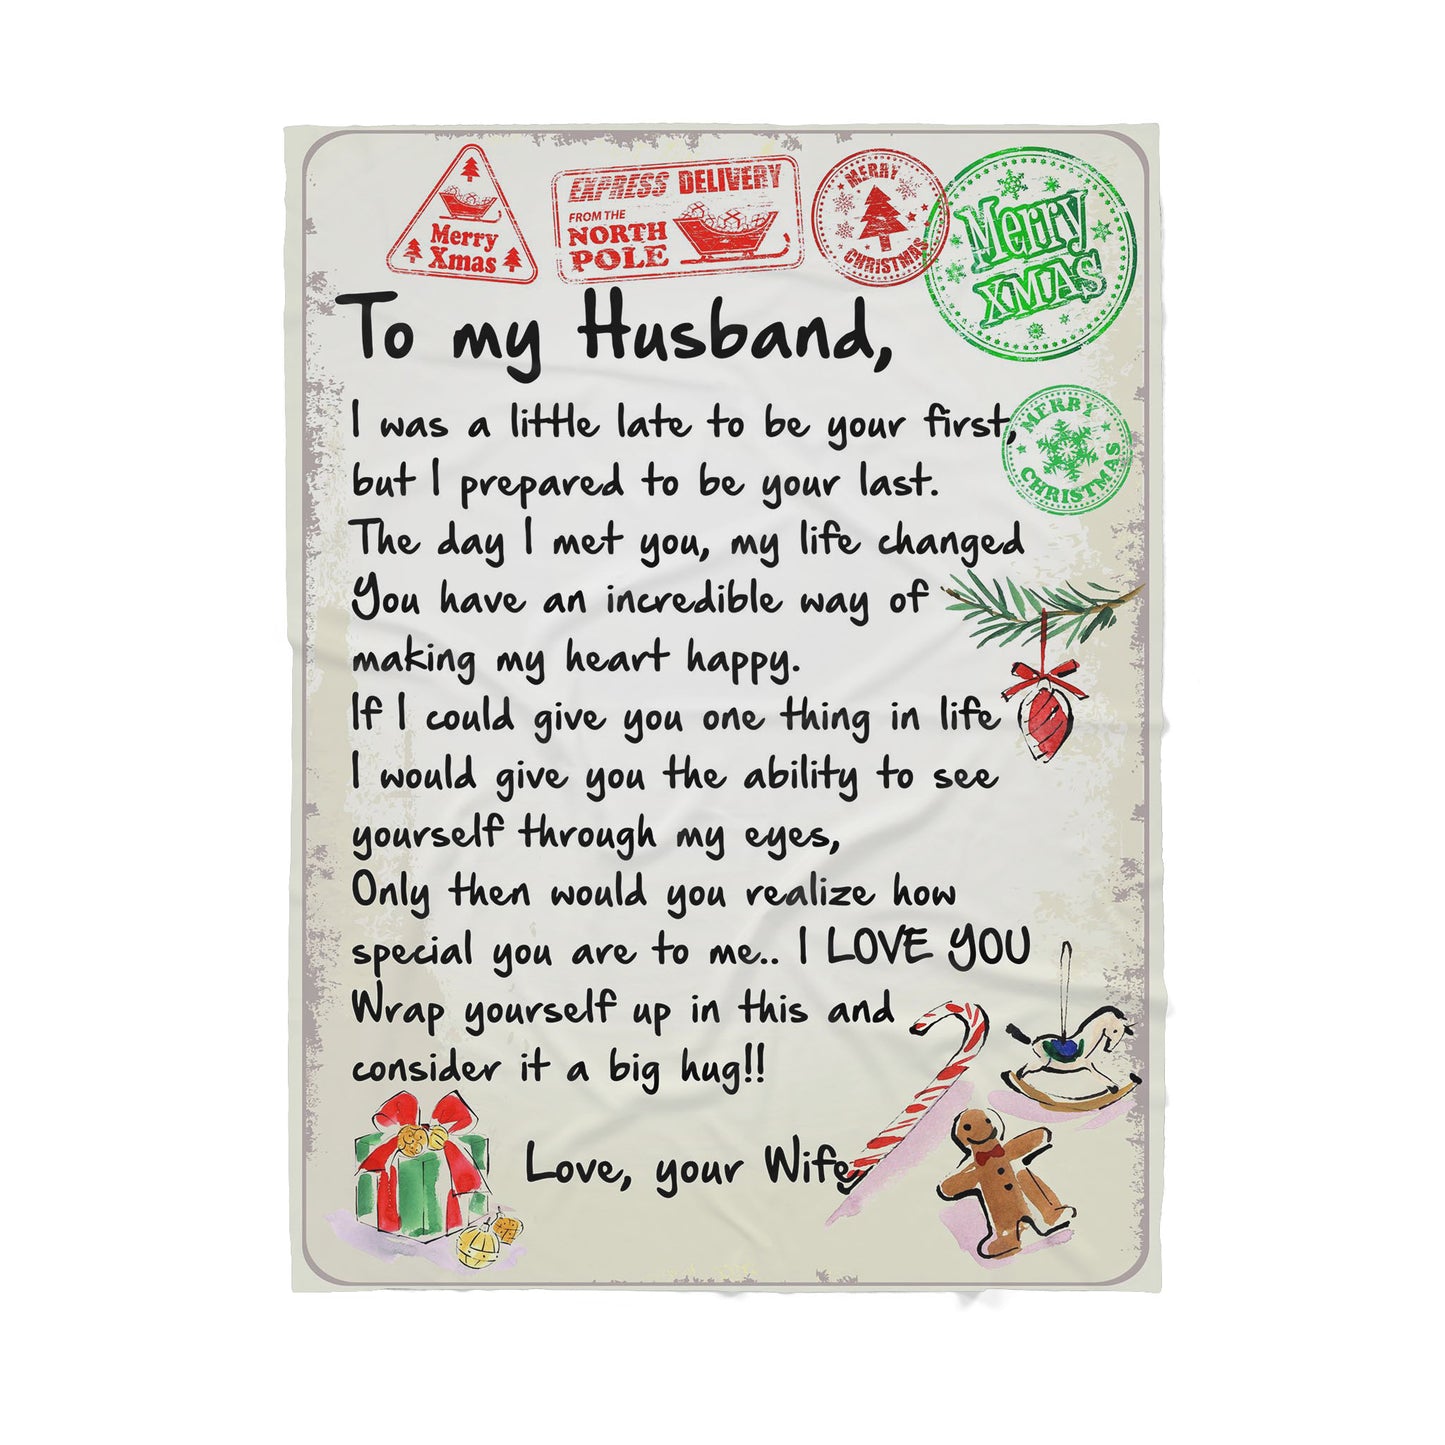 Merry
Xmas
EXPRESS DELIVERY
FROM THE
NORTH
POLE
MERRY
CHRISTMAS
Merry
XMAS
To my Husband,
I was a little late to be your first,
MERRY
CHRISTMAS
but I prepared to be your last.
The day I met you, my life changed
You have an incredible way of
making my heart happy.
If I could give you one thing in life
I would give you the ability to see
yourself through my eyes,
Only then would you realize how
special you are to me.. I LOVE YOU
Wrap yourself up in this and
consider it a big hug!!
Love, your Wife